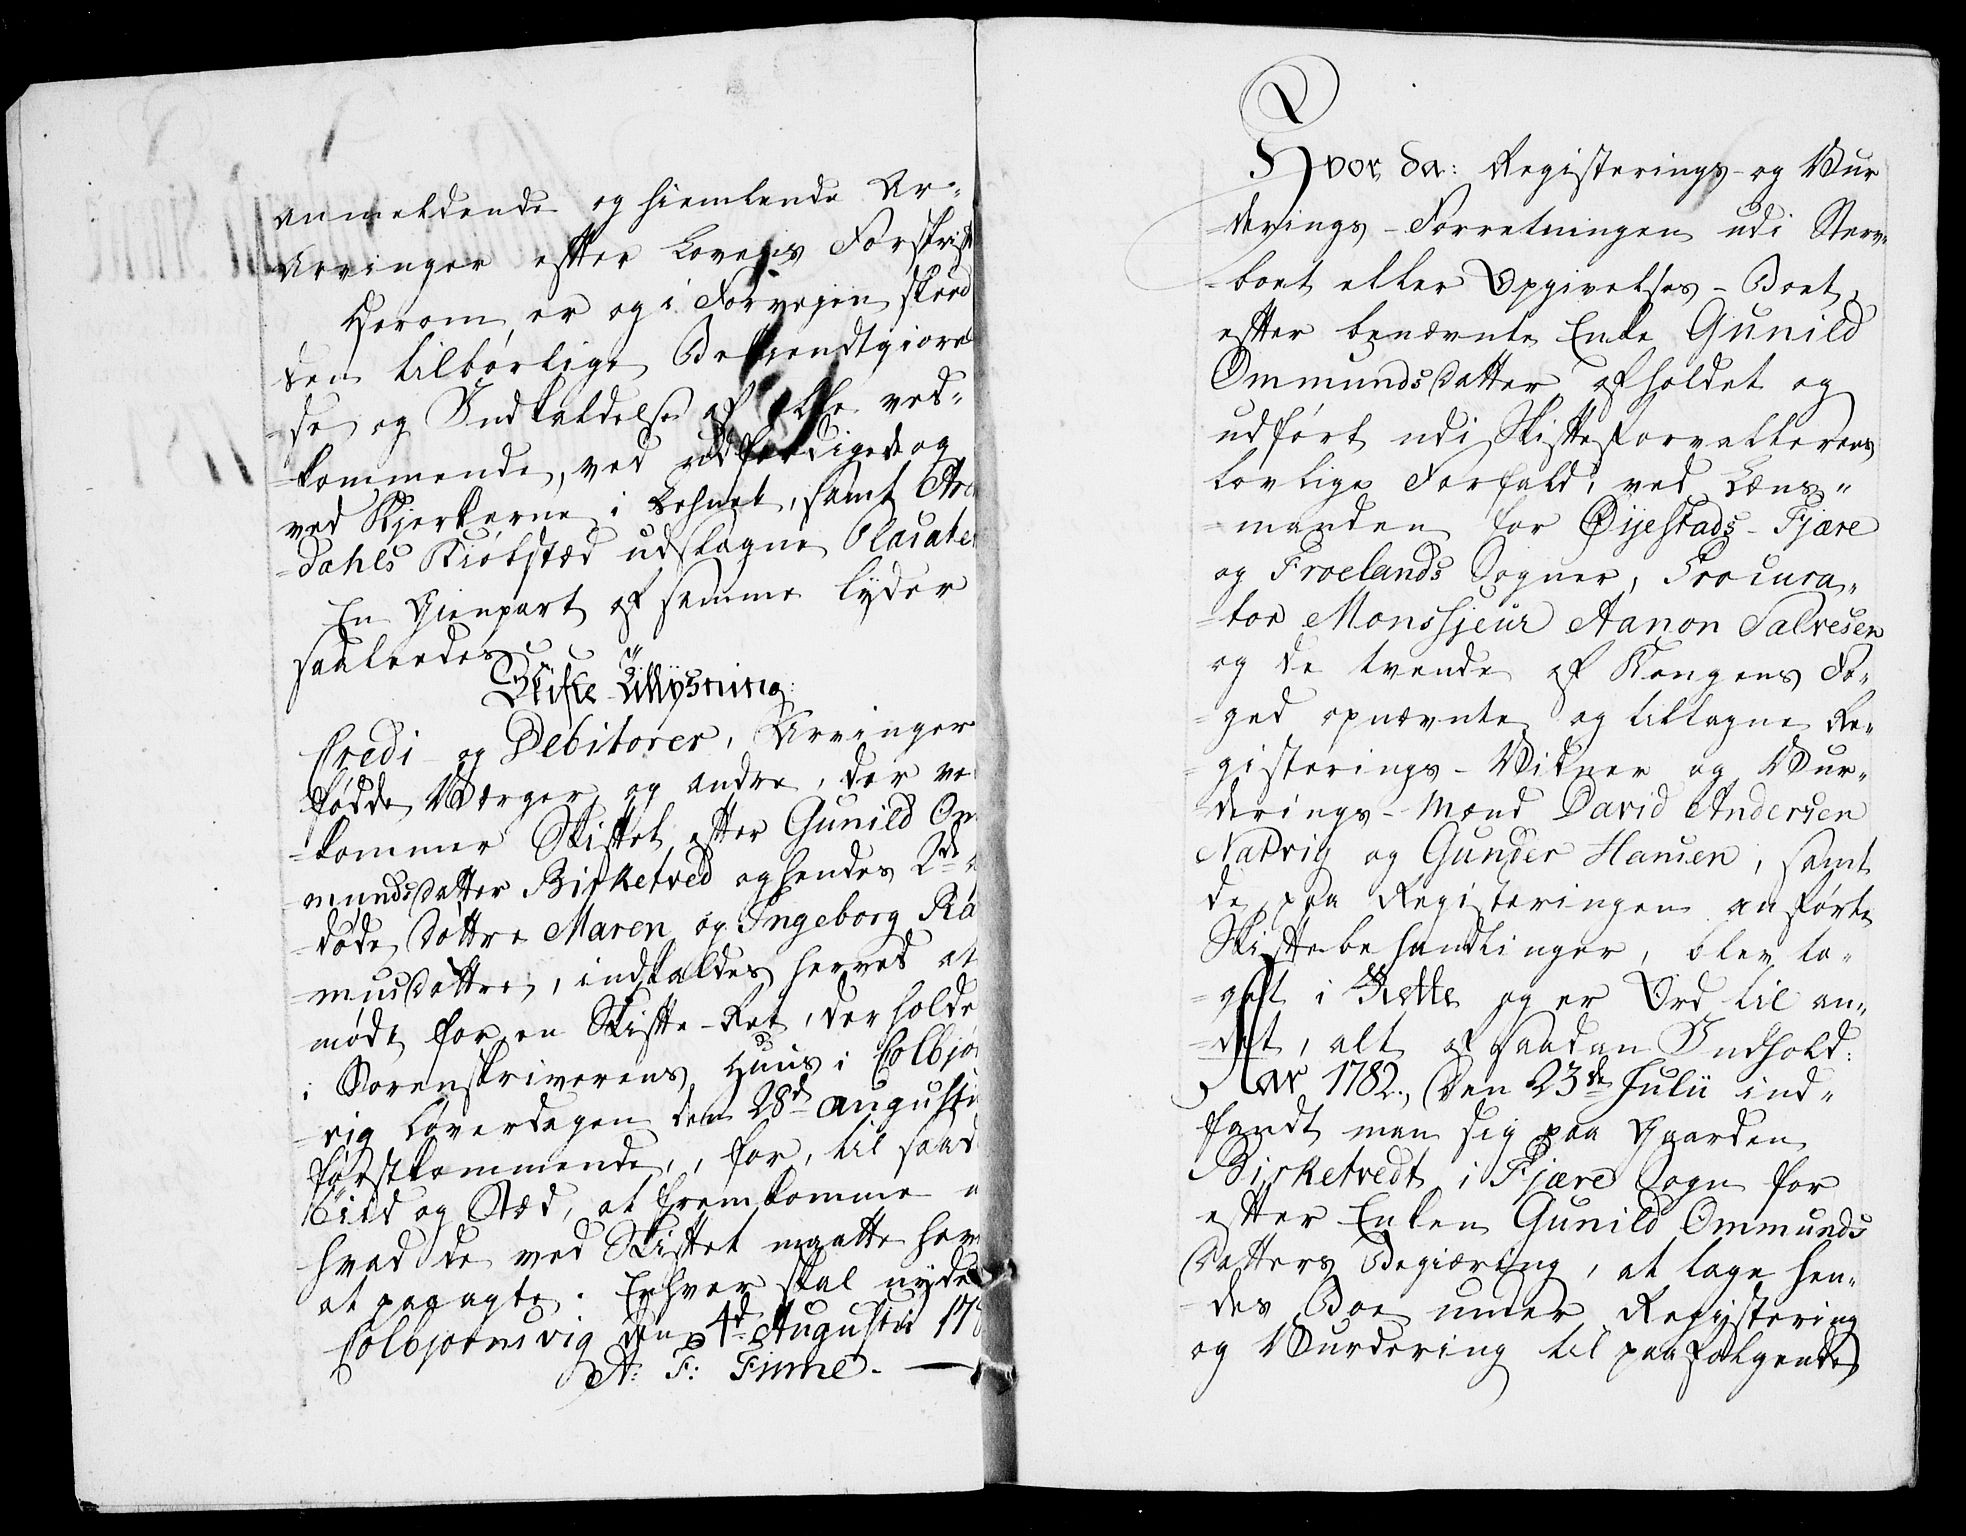 anmeldende og hiemlende Ar-
Arvinger efter Lovens Forskrift
Herom er og i Forvejen skeed
den tilbørlige Bekiendtgiørel
-se og Indkaldelse af alle ved-
-kommende, ved udfærdigede og
ved Kjerkerne i Lehnet, samt Aren
-dahls Kiøbstæd udslagne Placater
En Gienpart af samme lyder
saaledes
Skifte-Tillysning:
Credi- og Debitorer, Arvinger
fødde Værger og andre, der ved
-kommer Skiftet efter Gunild Om
munds datter Birketved og hendes 2de
døde døttre Maren og Ingeborg Ras
-mus døttre, indkaldes herved at
møde for en Skifte-Ret, der holdes
i Sorenskriverens Huus i Colbjør
-vig Løverdagen den 28d Augustii
førstkommende, for, til saad
Tiid og Stæd, at fremkomme
hvad de ved Skiftet maatte have
at paaagte. Enhver skal nyde
Colbjørnsvig den 4d Augustii 178
A: F: Finne.
Hvor, da: Registerings- og Vur
-derings-Forretningen udi Sterv-
-boet eller Opgivelses-Boet,
efter benævnte Enke Gunild
Ommunds datter afholdet og
udført udi Skifteforvalterens
lovlige Forfald, ved Lens-
-manden for Øijestads-Fjære
og Froelands Sogner, Procura-
-tor Monssjeur Aanon Salvesen
og de tvende af Kongens Fo-
-ged opnævnte og tiltagne Re-
-gisterings-Vidner og Vur-
-derings-Mænd David Andersen
Natvig og Gunder Hansen, samt
de paa Registeringen anførte
Skiftebehandlinger, blev ta-
-get i Rette og er Ord til an-
-det, alt af saadan Indhold:
Aar 1782., Den 23de Julii ind-
fandt man sig paa Gaarden
Birketvedt i Fjære Sogn for
efter Enken Gunild Ommunds
Datters Begiæring, at tage hen-
-des Boe under Registering
og Vurdering til paafølgende